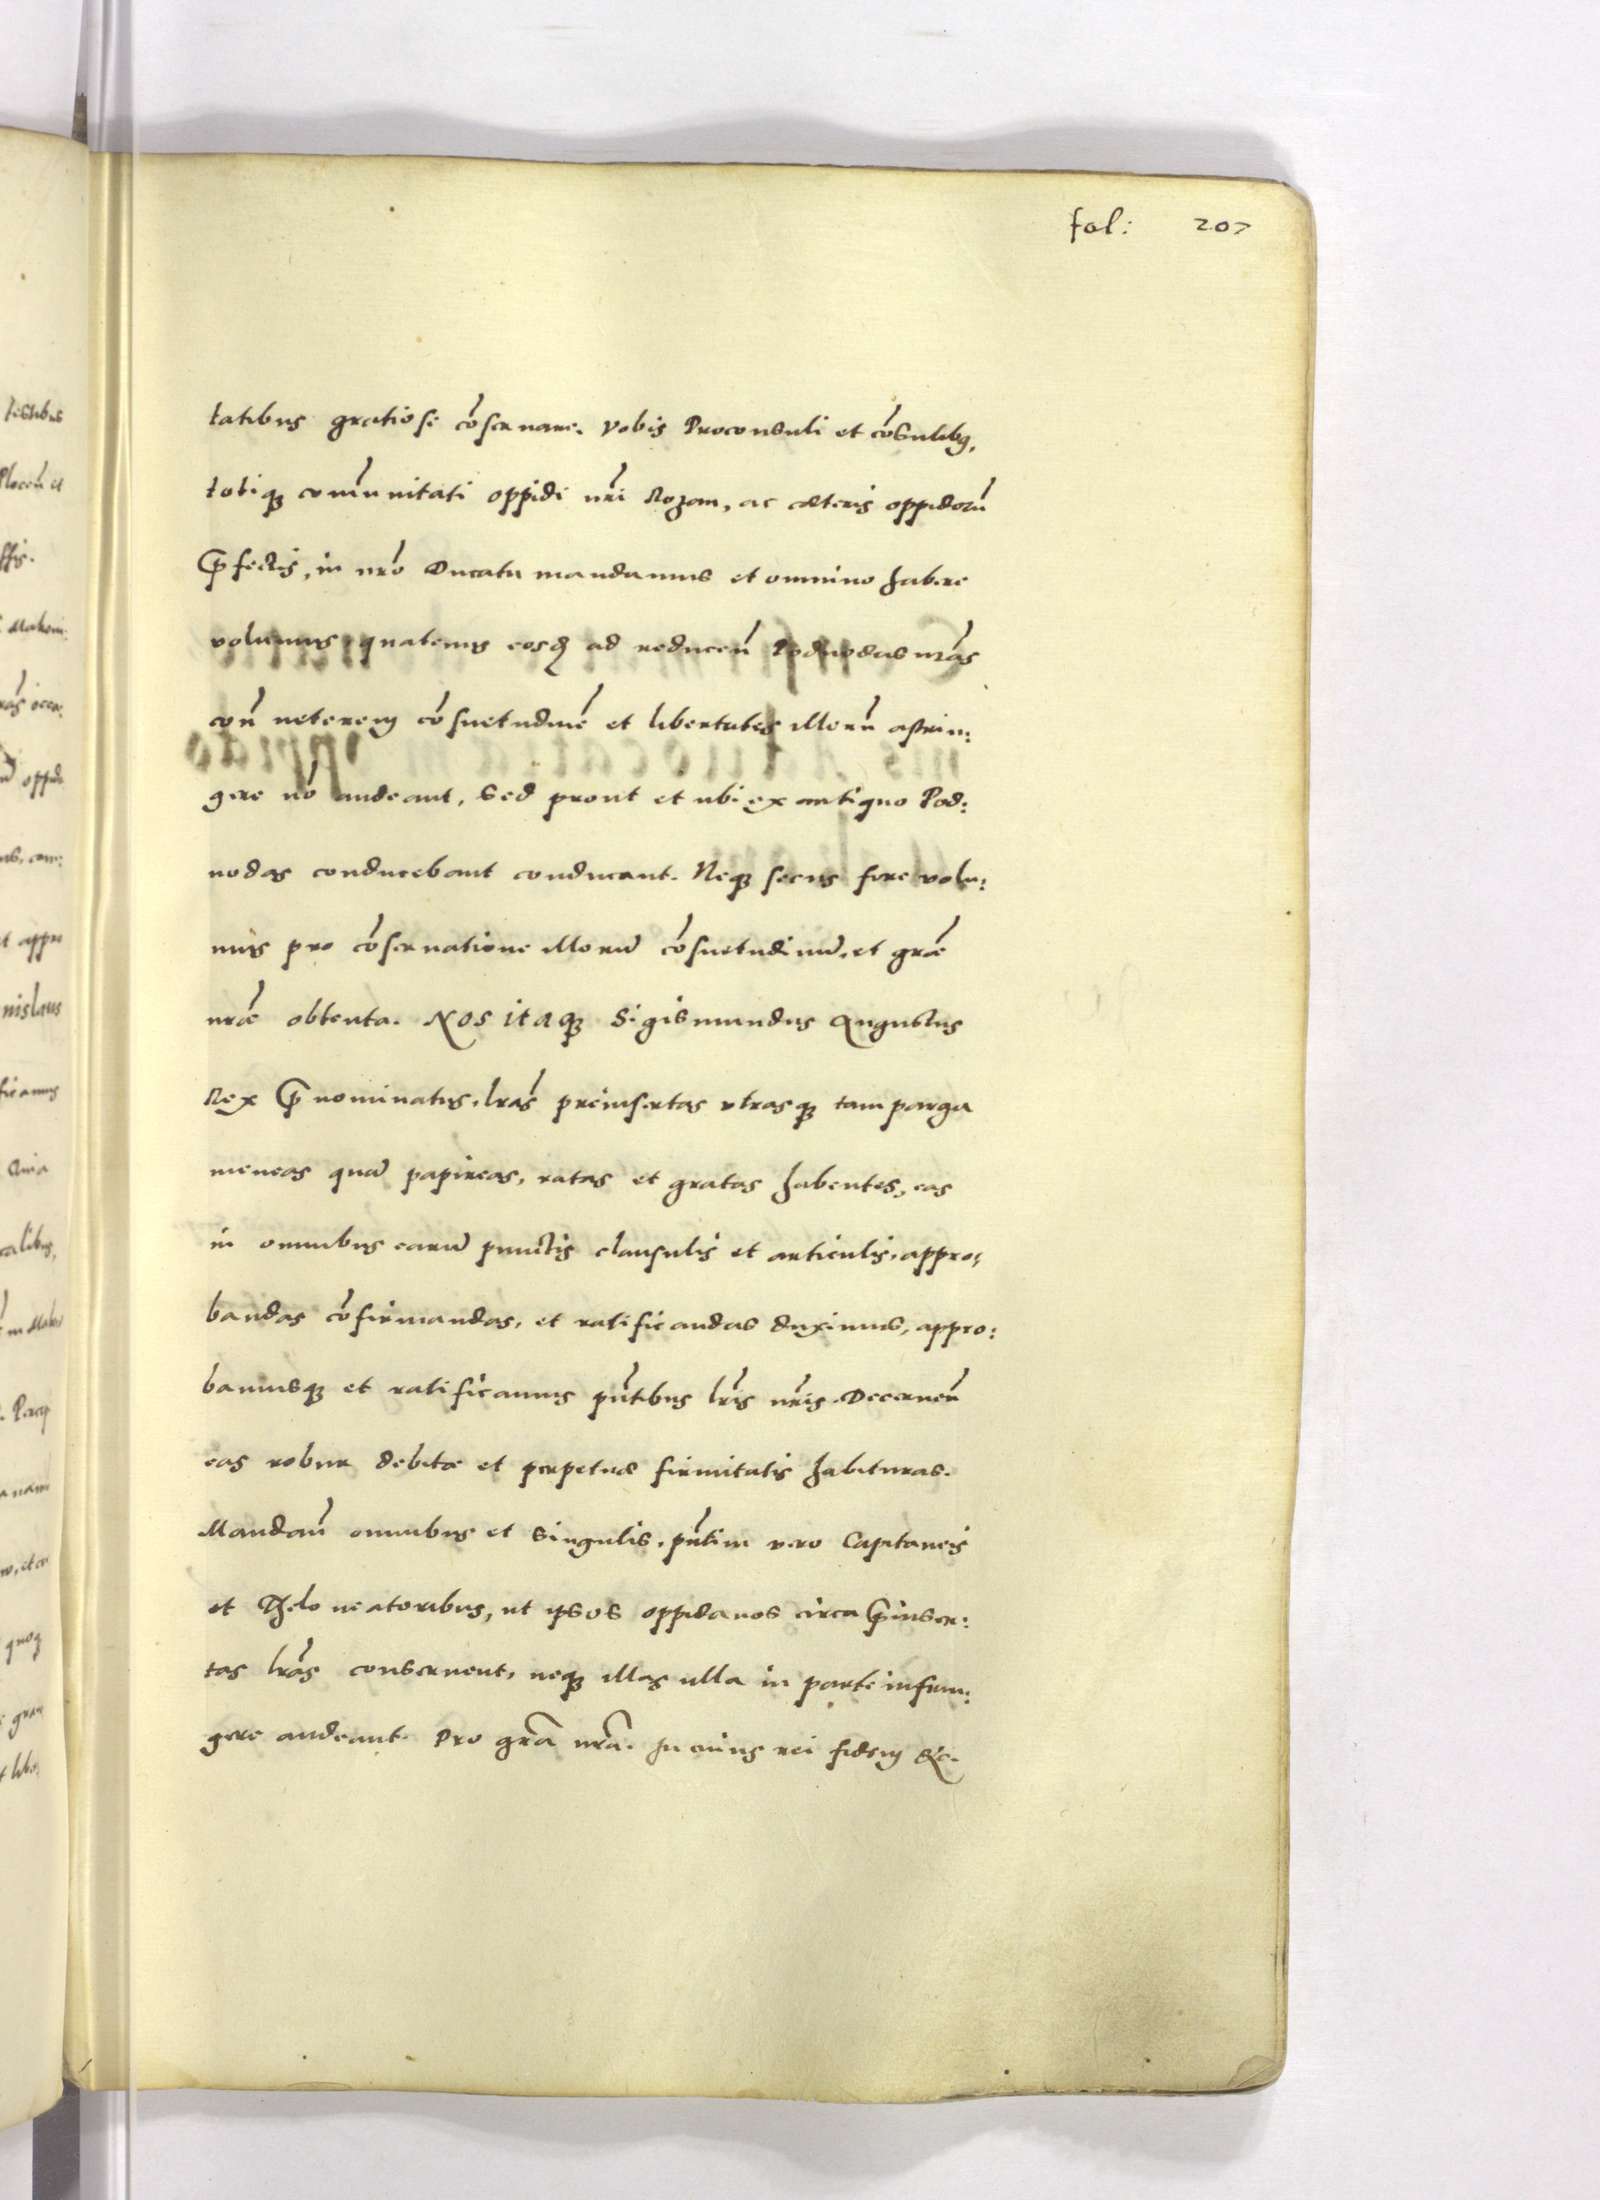 fol: 207
tatibus gratiose cōseruare. Vobis Proconsuli et cōsulibq,
totiqꝫ com̄unitati oppidi nr̄i Rozan, ac cæteris oppidorū
p̄fectis, in nrō Ducatu mandamus et omnino habere
volumus, quatenus eosꝗ ad reducen̄ Podwodas nrās
con̄ ueterem cōsuetudinē et libertates illorū astrin:
gere nō audeant, Sed prout et ubi ex antiquo Pod:
uodas conducebant conducant. Neqꝫ secus fore volu:
mus pro cōseruatione illorū cōsuetudinū, et grǣ
nrǣ obtenta. NOS itaqꝫ Sigismundus Augustus
Rex p̄nominatus, lrās preinsertas vtrasqꝫ tam parga
meneas quā papireas, ratas et gratas habentes, eas
in omnibus earū punctis clausulis et articulis, appro:
bandas cōfirmandas, et ratificandas duximus, appro:
bamusqꝫ et ratificamus pn̄tibus lrīs nrīs. Decernen̄
eas robur debitæ et perpetuæ firmitatis habituras.
Mandan̄ omnibus et singulis, pn̄tim vero Capitaneis
et Theloneatoribus, ut ipsos oppidanos circa p̄inser:
tas lrās conseruent, neqꝫ illas ulla in parte infrin:
gere audeant. Pro grā nrā. In cuius rei fidem &c.